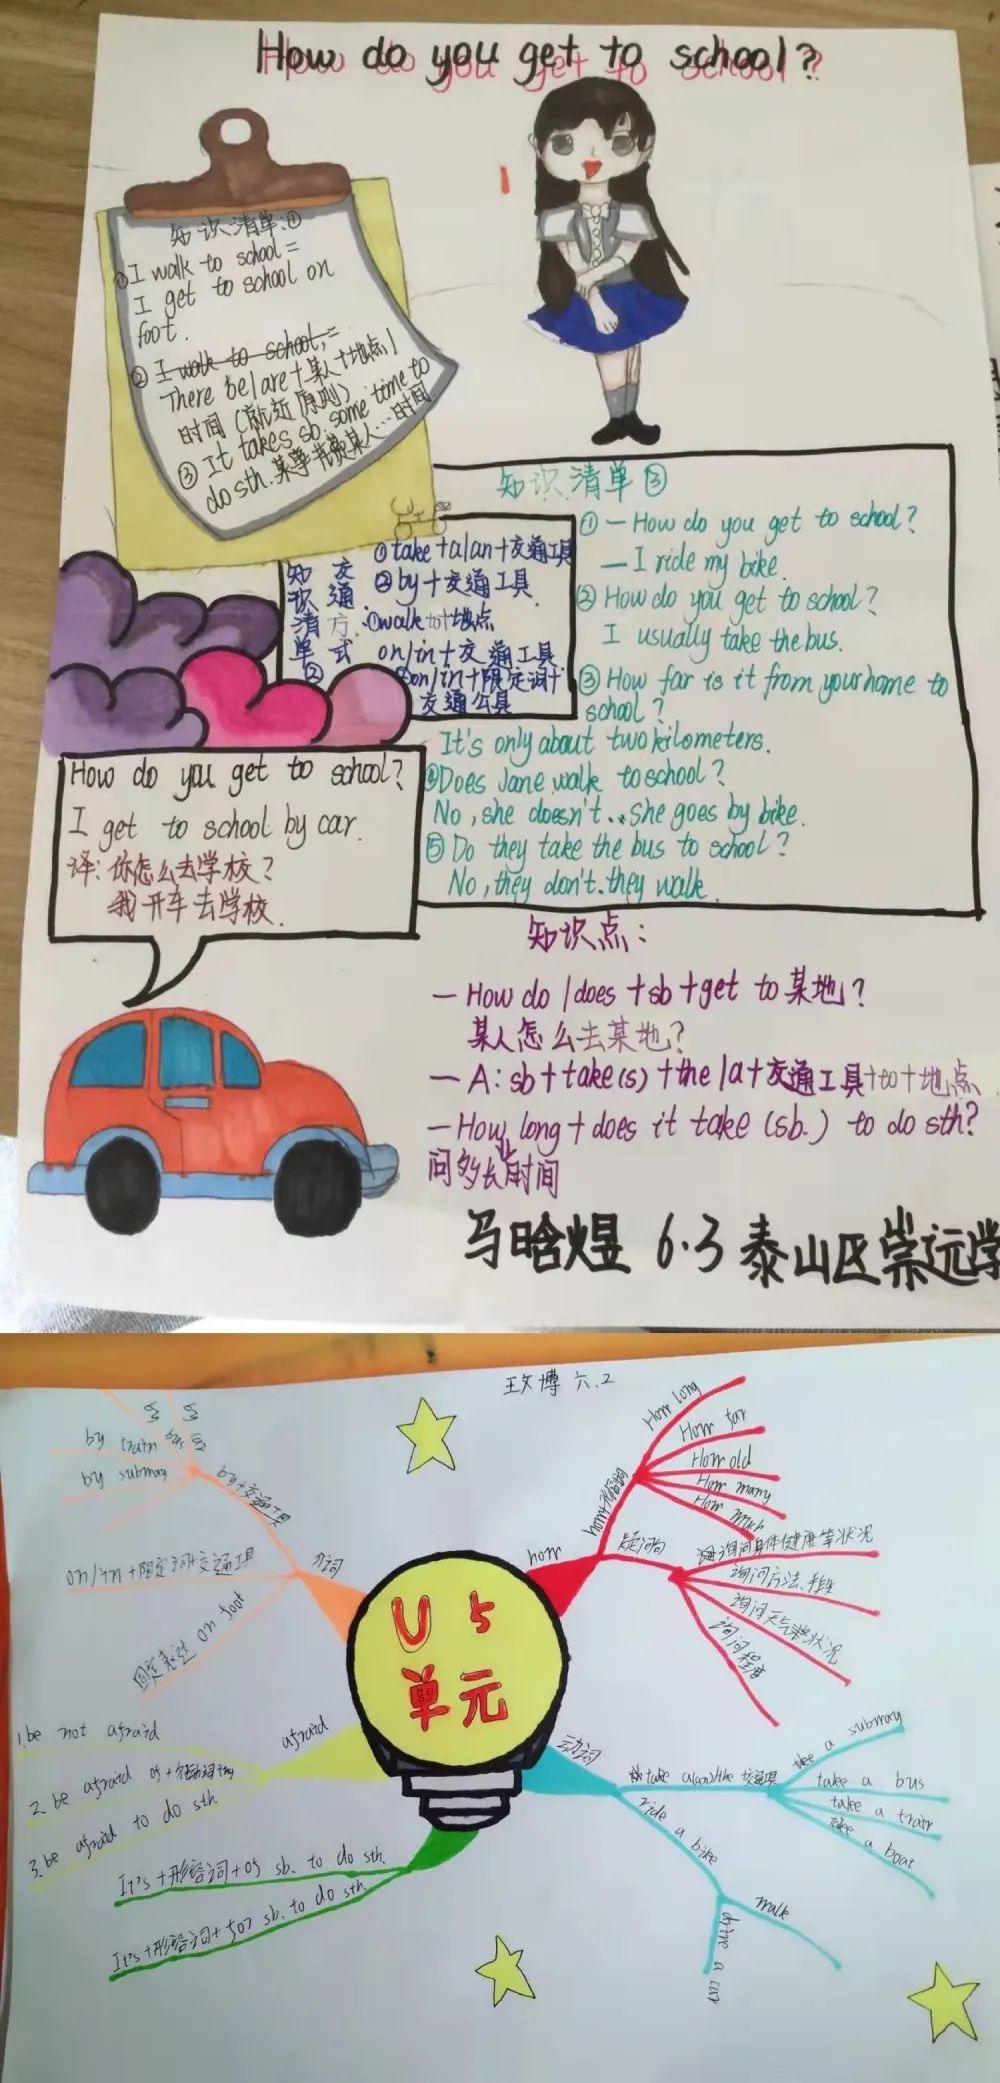 How do you get to school?
知识清单:①
①I walk to school =
I get to school on
foot.
② I walk to school, =
There be/are+某人+地点/
时间(就近原则)
③ It takes sb. some time to
do sth.某事花费某人…时间
知识清单②
交通方式:
①take+a/an+交通工具
②by+交通工具
①walk to+地点
on/in+交通工具
②on/in+限定词+
交通公具
知识清单③
①—How do you get to school?
—I ride my bike.
②How do you get to school?
I usually take the bus.
③How far is it from your home to
school?
It's only about two kilometers.
④Does Jane walk to school?
No, she doesn't. She goes by bike.
⑤Do they take the bus to school?
No, they don't. they walk.
How do you get to school?
I get to school by car.
译:你怎么去学校?
我开车去学校.
知识点:
—How do/does+sb+get to某地?
某人怎么去某地?
—A:sb+take(s)+the/a+交通工具+to+地点
—How long+does it take (sb.) to do sth?
问多长时间
马晗煜 6.3 泰山区崇远学
王文博 六.2
U5
单元
how
how+形容词
How long
How far
How old
How many
How much
疑问句
询问身体健康等状况
询问方法、手段
询问天气等状况
询问程度
动词
take a(an)/the 交通工具
take a subway
take a bus
take a train
take a boat
ride a bike
walk
drive a car
介词
by+交通工具
by
by
by train
bus
by subway
on/in+限定词+交通工具
固定表达 on foot
afraid
1.be not afraid
2.be afraid of
3.be afraid to do sth.
It's+形容词+of sb. to do sth.
It's+形容词+for sb. to do sth.